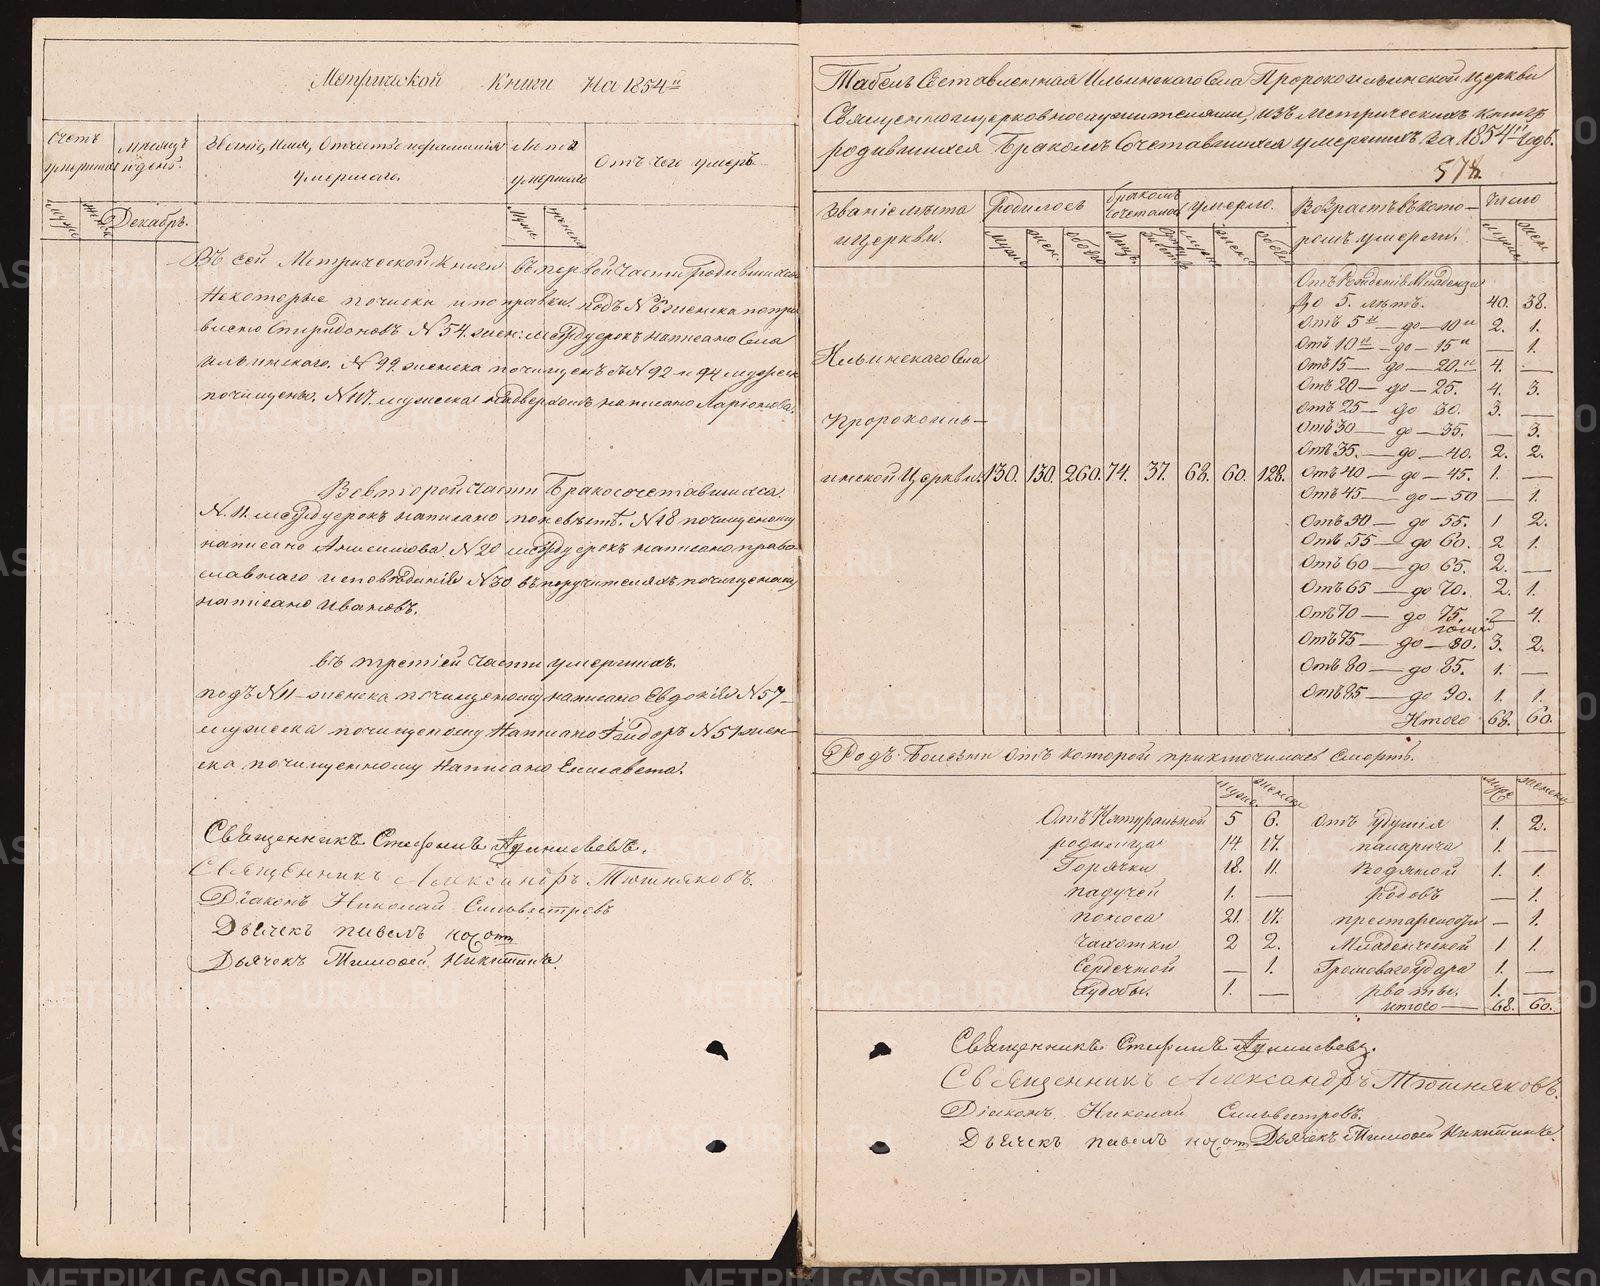 Метрической Книги на 1854й
Счетъ умершихъ
Мѣсяцъ и день.
Званіе, Имя, Отчество и фамилія умершаго.
Лета умершаго
Отъ чего умеръ.
Декабрь.
Въ сей Метрической Книги въ первой части родившихся
Некоторые почиски и поправки. подъ № 6 женска попра
влено Спиридоновъ № 54. жен: между срокъ написано Села
ильинскаго. № 99. женска почищенъ и № 92 и 94 мужеск
почищено. № 117. мужеска надверхомъ написано Ларіонова.
Во второй части Бракосочетавшихся.
№ 11. между срокъ написано по невѣстѣ. № 18 почищеному
написано Анисимова № 20 между срокъ написано право
славнаго исповѣданія № 30 въ поручителяхъ почищеному
написано Ивановъ.
въ третіей части умершихъ.
подъ № 11 женска почищеному написано Евдокія № 57
мужеска почищеному Написано Феидоръ № 51 жен-
ска почищенному Написано Елисавета.
Священникъ Стефанъ
Священникъ Александръ Тюшняковъ.
Діаконъ Николай Сильвестровъ
Дьячекъ павелъ
Дьячекъ Тимофей Никитинъ.
Табель Составленная Ильинскаго Села Пророкоильинской церкви
Священноцерковнослужителями, изъ Метрическихъ книгъ
родившихся Бракомъ Сочетавшихся умершихъ за 1854й годъ.
574.
Званіе мѣста и церкви.
родилось
бракомъ сочеталось
умерло.
Возрастъ въ кото-
ромъ умерли.
Число
муж. жен.
муж. жен. обоего
Лицъ.
муж. жен. обоего
Ильинскаго Села
Пророкоиль-
инской Церкви. 130. 130. 260. 74. 37. 68. 60. 128.
Отъ Рожденія Младенцы
до 5. лѣтъ. 40. 38.
Отъ 5и — до — 10и 2. 1.
Отъ 10и — до — 15и — 1.
Отъ 15 — до — 20.и 4. —
Отъ 20 — до — 25. 4. 3.
Отъ 25 — до 30. 3. —
Отъ 30 — до — 35. — 3.
Отъ 35. — до — 40. 2. 2.
Отъ 40 — до — 45. 1. —
Отъ 45 — до — 50 — 1.
Отъ 50 — до 55. 1 2.
Отъ 55 — до 60. 2 1.
Отъ 60 — до 65. 2. —
Отъ 65 — до 70. 2. 1.
Отъ 70 — до 75. 2 4.
Отъ 75 — до — 80. 3. 2.
Отъ 80 — до 85. 1. —
Отъ 85 — до 90. 1. 1.
Итого 68. 60.
Родъ Болезни Отъ которой приключилась Смерть.
муж. женск. муж. женск.
Отъ Натуральной 5 6. Отъ удушія 1. 2.
родимца 14. 17. паларича 1. —
Горячки 18. 11. Водяной 1. 1.
падучей 1. — родовъ — 1.
поноса 21. 17. престарелости — 1.
Чахотки 2 2. Младенческой 1 1.
Сердечной — 1. Громоваго удара 1. —
Худобы. 1. — рвоты. 1. —
итого — 68. 60.
Священникъ Стефанъ
Священникъ Александръ Тюшняковъ.
Діаконъ Николай Сильвестровъ.
Дьячекъ павелъ Дьячекъ Тимофей Никитинъ.
METRIKI.GASO-URAL.RU